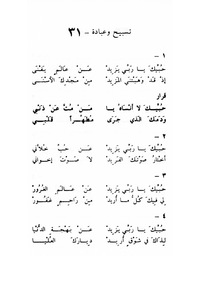 تسبيح وعبادة - ٣١
- ١
حُبُّكَ يَا رَبِّي يَزِيدْ عَنْ عَالَمٍ يَفْنَى
إِذْ قَدْ وَهَبْتَنِي المَزِيدْ مِنْ مَجْدِكَ الأَسْنَى
قرار
حُبُّكَ لاَ أَنْسَاهُ يَا مَنْ مُتَّ عَنْ ذَنْبِي
وَدَمُكَ الذِي جَرَى مُطَهِّراً قَلْبِي
- ٢
حُبُّكَ يَا رَبِّي يَزِيدْ عَنْ حُبِّ خُلاَّنِي
أَخْتَارُ صَوْتَكَ الفَرِيدْ لاَ صَوْتَ إِخْوَانِي
- ٣
حُبُّكَ يَا رَبِّي يَزِيدْ عَنْ عَالَمِ الغُرُورْ
لِي فِيكَ كُلُّ مَا أُرِيدْ مِنْ رَاحِمٍ غَفُورْ
- ٤
حُبُّكَ يَا رَبِّي يَزِيدْ عَنْ بَهْجَةِ الدُّنْيَا
لِذَاكَ فِي شَوْقٍ أُرِيدْ دِيَارَكَ العُلْيَا